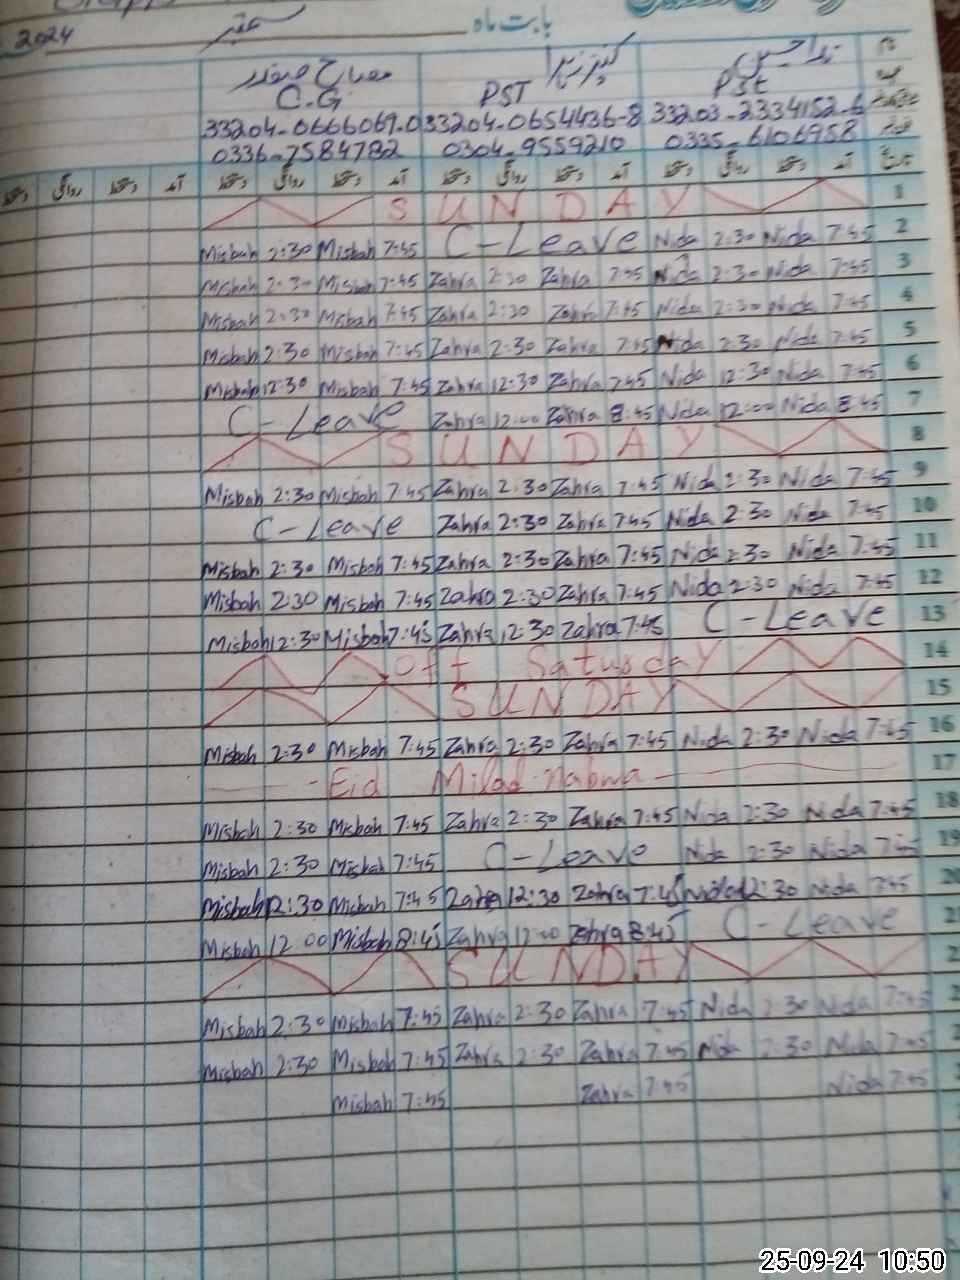 2024 ستمبر بابت ماہ
نام ندا حسین کنیز زہرا مصباح صفدر
Pst PST C.G
33204-0666069-0 33204-0654436-8 33203-2334152-6
0336-7584782 0304-9559210 0335-6106958
تاریخ آمد دستخط روانگی دستخط آمد دستخط روانگی دستخط آمد دستخط روانگی دستخط آمد دستخط روانگی دستخط
SUNDAY 1
Misbah 2:30 Misbah 7:45 C-Leave Nida 2:30 Nida 7:45 2
Misbah 2:30 Misbah 7:45 Zahra 2:30 Zahra 7:45 Nida 2:30 Nida 7:45 3
Misbah 2:30 Misbah 7:45 Zahra 2:30 Zahra 7:45 Nida 2:30 Nida 7:45 4
Misbah 2:30 Misbah 7:45 Zahra 2:30 Zahra 7:45 Nida 2:30 Nida 7:45 5
Misbah 12:30 Misbah 7:45 Zahra 12:30 Zahra 7:45 Nida 12:30 Nida 7:45 6
C-Leave Zahra 12:00 Zahra 8:45 Nida 12:00 Nida 8:45 7
SUNDAY 8
Misbah 2:30 Misbah 7:45 Zahra 2:30 Zahra 7:45 Nida 2:30 Nida 7:45 9
C-Leave Zahra 2:30 Zahra 7:45 Nida 2:30 Nida 7:45 10
Misbah 2:30 Misbah 7:45 Zahra 2:30 Zahra 7:45 Nida 2:30 Nida 7:45 11
Misbah 2:30 Misbah 7:45 Zahra 2:30 Zahra 7:45 Nida 2:30 Nida 7:45 12
Misbah 12:30 Misbah 7:45 Zahra 12:30 Zahra 7:45 C-Leave 13
Off Saturday 14
SUNDAY 15
Misbah 2:30 Misbah 7:45 Zahra 2:30 Zahra 7:45 Nida 2:30 Nida 7:45 16
Eid Milad-nabwa 17
Misbah 2:30 Misbah 7:45 Zahra 2:30 Zahra 7:45 Nida 2:30 Nida 7:45 18
Misbah 2:30 Misbah 7:45 C-Leave Nida 2:30 Nida 7:45 19
Misbah 12:30 Misbah 7:45 Zahra 12:30 Zahra 7:45 Nida 12:30 Nida 7:45 20
Misbah 12:00 Misbah 8:45 Zahra 12:00 Zahra 8:45 C-Leave 2
SUNDAY 2
Misbah 2:30 Misbah 7:45 Zahra 2:30 Zahra 7:45 Nida 2:30 Nida 7:45 2
Misbah 2:30 Misbah 7:45 Zahra 2:30 Zahra 7:45 Nida 2:30 Nida 7:45 2
Misbah 7:45 Zahra 7:45 Nida 7:45
25-09-24 10:50